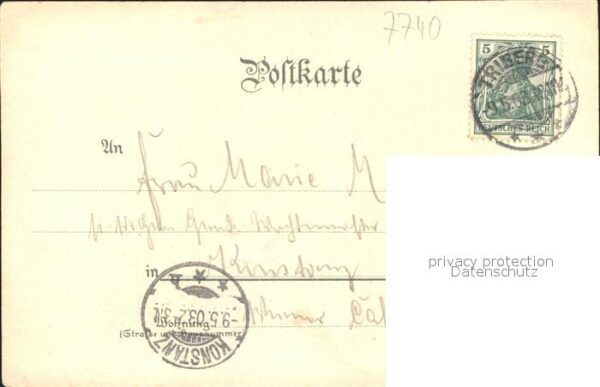 7740
Postkarte
5 5
TRIBERG
9.5.0
DEUTSCHES REICH
An
Frau Marie M
privacy protection
Datenschutz
in Konstanz
Wiener Ca
9.5.03.2-3N.
Wohnung
(Straße und Hausnummer)
KONSTANZ